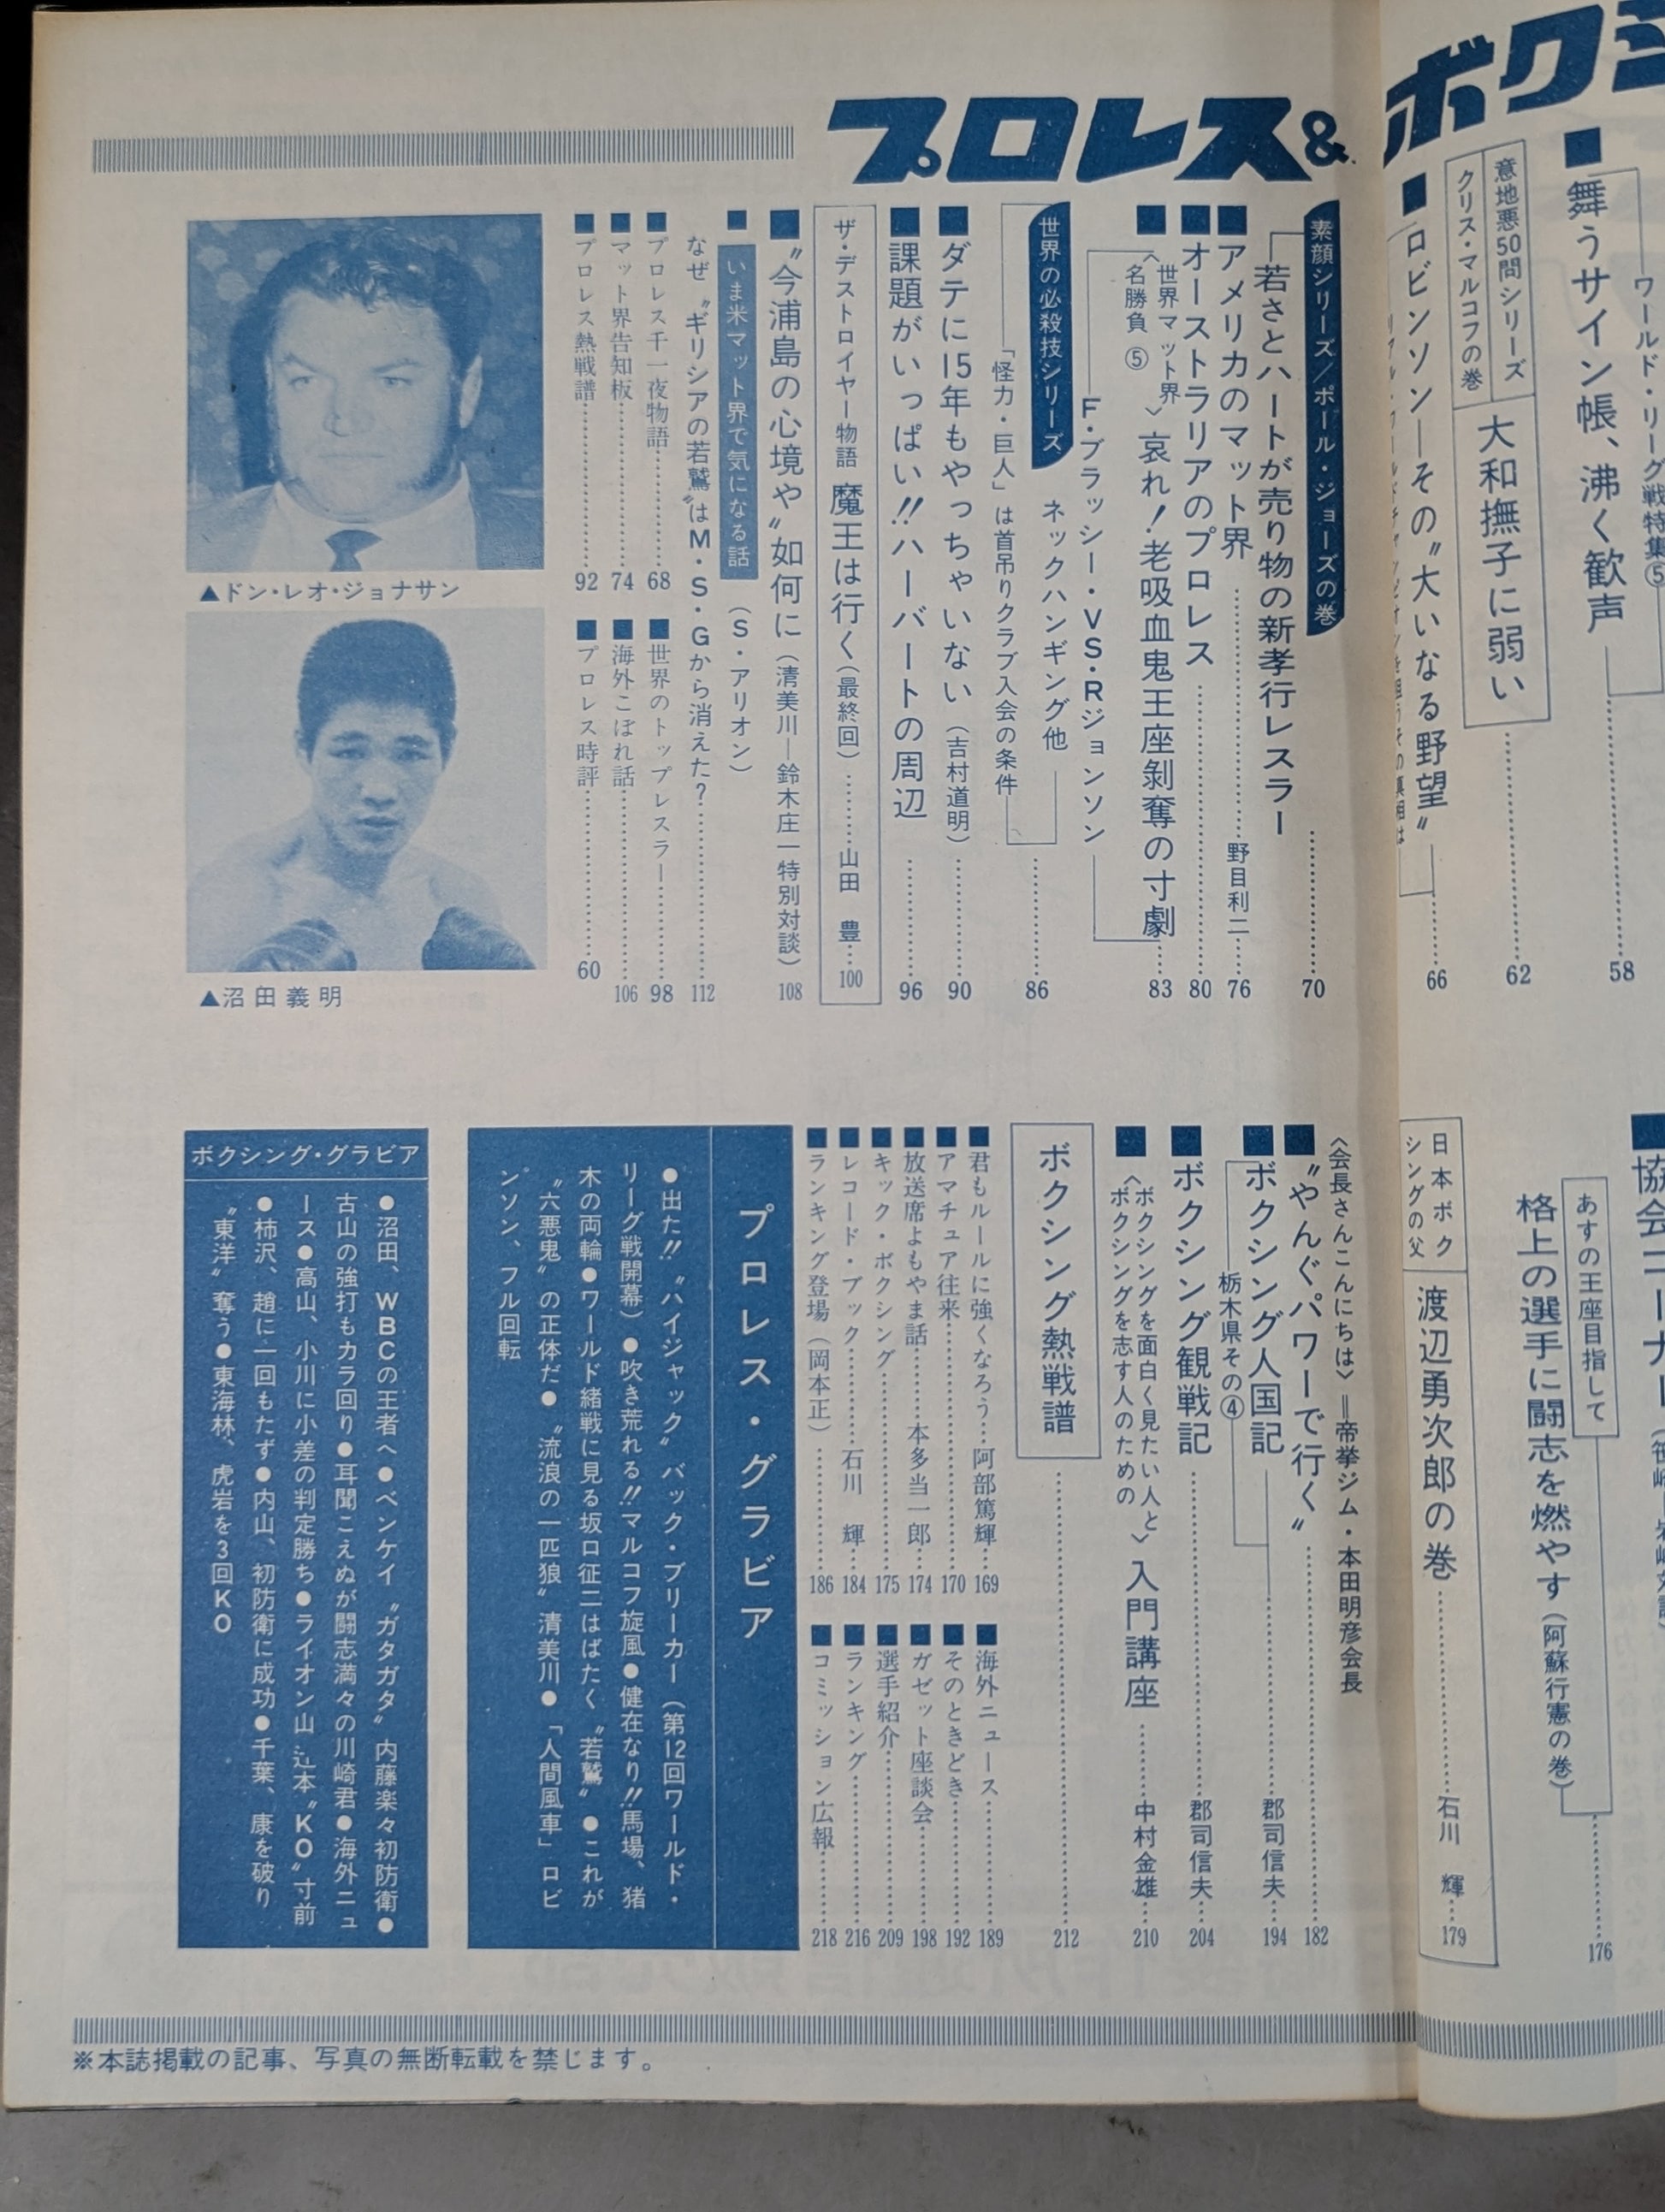 プロレス&ボクシ
ワールド・リーグ戦特集⑤
■舞うサイン帳、沸く歓声
58
意地悪50問シリーズ
クリス・マルコフの巻
大和撫子に弱い
62
■ロビンソン—その〝大いなる野望〟
66
素顔シリーズ/ポール・ジョーズの巻
若さとハートが売り物の新孝行レスラー
70
■アメリカのマット界
野目利二
76
■オーストラリアのプロレス
80
■〈世界マット界名勝負⑤〉哀れ!老吸血鬼王座剝奪の寸劇
F・ブラッシー・VS・Rジョンソン
83
世界の必殺技シリーズ
ネックハンギング他
「怪力・巨人」は首吊りクラブ入会の条件
86
■ダテに15年もやっちゃいない(吉村道明)
90
■課題がいっぱい!!ハーバートの周辺
96
ザ・デストロイヤー物語 魔王は行く(最終回)
山田 豊
100
■〝今浦島の心境や〟如何に(清美川—鈴木庄一特別対談)
108
■いま米マット界で気になる話(S・アリオン)
なぜ〝ギリシアの若鷲〟はM・S・Gから消えた?
112
■プロレス千一夜物語
68
■世界のトップレスラー
98
■マット界告知板
74
■海外こぼれ話
106
■プロレス熱戦譜
92
■プロレス時評
60
▲ドン・レオ・ジョナサン
▲沼田義明
あすの王座目指して
格上の選手に闘志を燃やす(阿蘇行憲の巻)
176
日本ボクシングの父
渡辺勇次郎の巻
石川 輝
179
〈会長さんこんにちは〉=帝拳ジム・本田明彦会長
■〝やんぐパワーで行く〟
182
■ボクシング人国記
栃木県その④
郡司信夫
194
■ボクシング観戦記
郡司信夫
204
■〈ボクシングを面白く見たい人とボクシングを志す人のための〉入門講座
中村金雄
210
ボクシング熱戦譜
212
■君もルールに強くなろう
阿部篤輝
169
■海外ニュース
189
■アマチュア往来
170
■そのときどき
192
■放送席よもやま話
本多当一郎
174
■ガゼット座談会
198
■キック・ボクシング
175
■選手紹介
209
■レコード・ブック
石川 輝
184
■ランキング
216
■ランキング登場(岡本正)
186
■コミッション広報
218
プロレス・グラビア
●出た!!〝ハイジャック〟バック・ブリーカー(第12回ワールド・
リーグ戦開幕)●吹き荒れる!!マルコフ旋風●健在なり!!馬場、猪
木の両輪●ワールド緒戦に見る坂口征二はばたく〝若鷲〟●これが
〝六悪鬼〟の正体だ●〝流浪の一匹狼〟清美川●「人間風車」ロビ
ンソン、フル回転
ボクシング・グラビア
●沼田、WBCの王者へ●ベンケイ〝ガタガタ〟内藤楽々初防衛●
古山の強打もカラ回り●耳聞こえぬが闘志満々の川崎君●海外ニュ
ース●高山、小川に小差の判定勝ち●ライオン山辻本〝KO〟寸前
●柿沢、趙に一回もたず●内山、初防衛に成功●千葉、康を破り
〝東洋〟奪う●東海林、虎岩を3回KO
※本誌掲載の記事、写真の無断転載を禁じます。